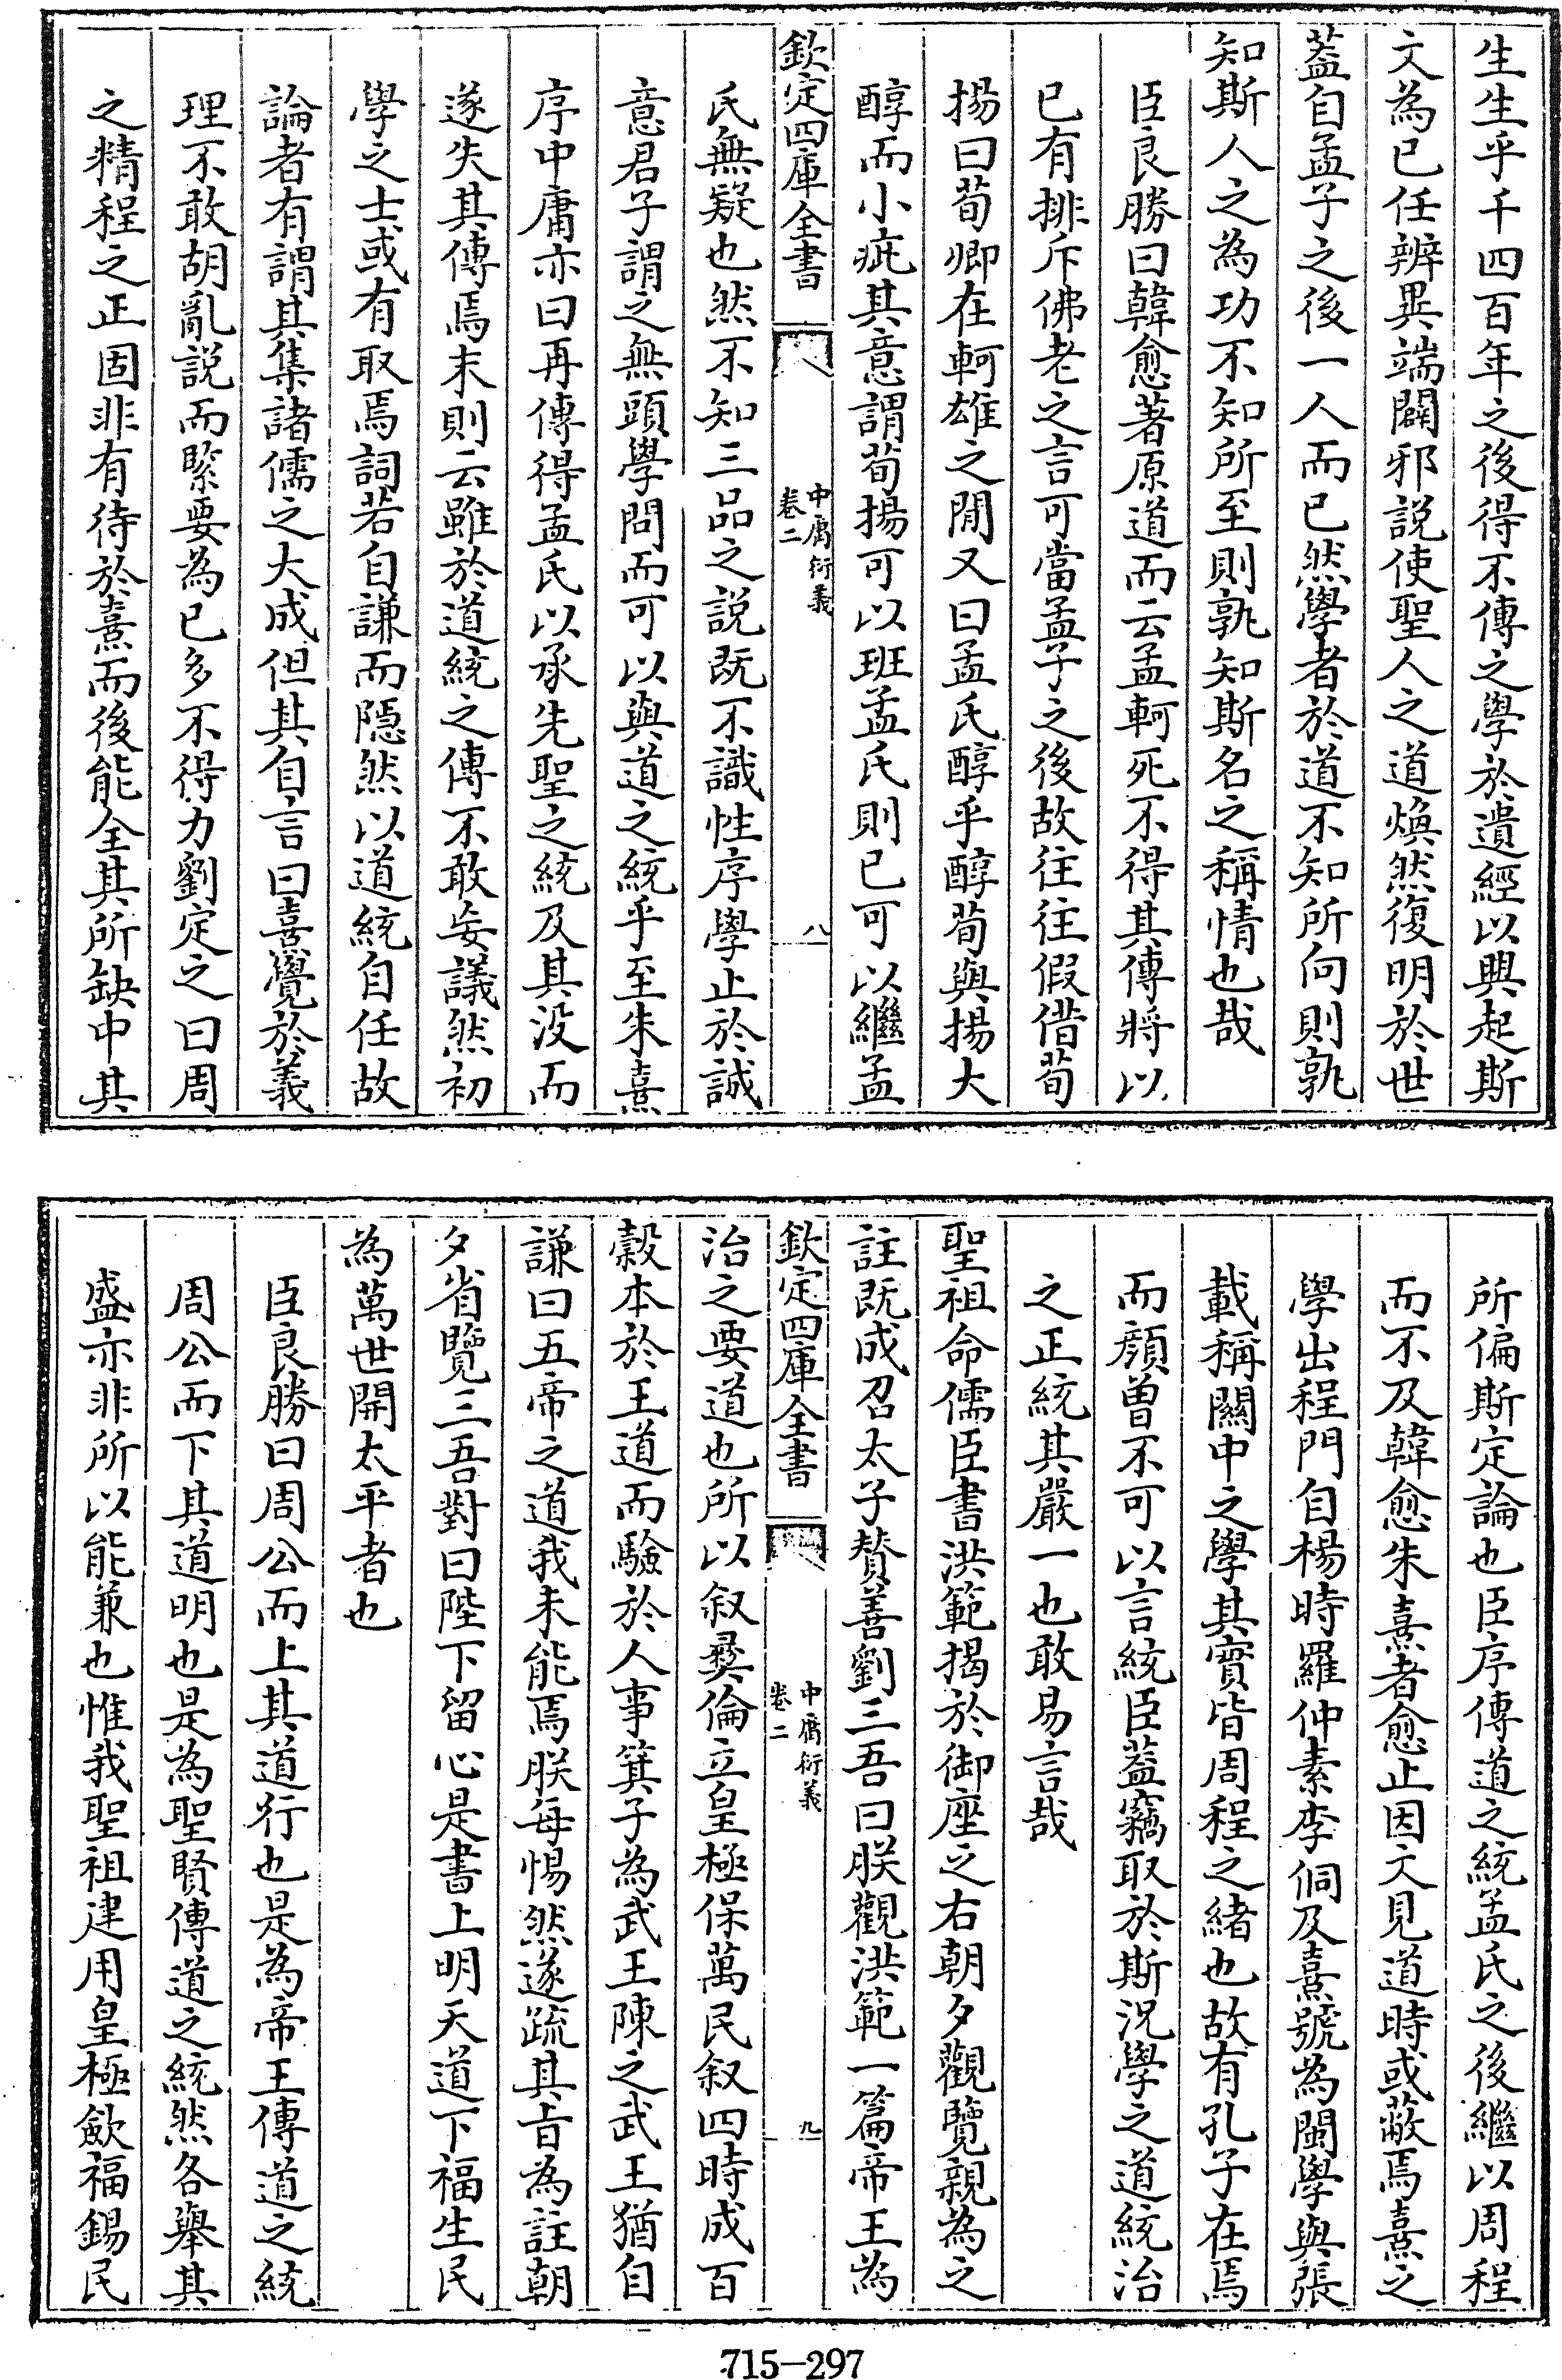 生生乎千四百年之後得不傳之學於遺經以興起斯
文為已任辨異端闢邪說使聖人之道煥然復明於世
蓋自孟子之後一人而已然學者於道不知所向則孰
知斯人之為功不知所至則孰知斯名之稱情也哉
臣良勝曰韓愈著原道而云孟軻死不得其傳將以
已有排斥佛老之言可當孟子之後故往往假借荀
揚曰荀卿在軻雄之閒又曰孟氏醇乎醇荀與揚大
醇而小疵其意謂荀揚可以班孟氏則已可以繼孟
欽定四庫全書
中庸衍義
卷二
八
氏無疑也然不知三品之說既不識性序學止於誠
意君子謂之無頭學問而可以與道之統乎至朱熹
序中庸亦曰再傳得孟氏以承先聖之統及其没而
遂失其傳焉末則云雖於道統之傳不敢妄議然初
學之士或有取焉詞若自謙而隠然以道統自任故
論者有謂其集諸儒之大成但其自言曰熹覺於義
理不敢胡亂說而緊要為已多不得力劉定之曰周
之精程之正固非有待於熹而後能全其所缺中其
所偏斯定論也臣序傳道之統孟氏之後繼以周程
而不及韓愈朱熹者愈止因文見道時或蔽焉熹之
學出程門自楊時羅仲素李侗及熹號為閩學與張
載稱關中之學其實皆周程之緒也故有孔子在焉
而顔曽不可以言統臣蓋竊取於斯況學之道統治
之正統其嚴一也敢易言哉
聖祖命儒臣書洪範揭於御座之右朝夕觀覽親為之
註既成召太子贊善劉三吾曰朕觀洪範一篇帝王為
欽定四庫全書
中庸衍義
卷二
九
治之要道也所以叙彞倫立皇極保萬民叙四時成百
穀本於王道而驗於人事箕子為武王陳之武王猶自
謙曰五帝之道我未能焉朕每惕然遂疏其㫖為註朝
夕省覽三吾對曰陛下留心是書上明天道下福生民
為萬世開太平者也
臣良勝曰周公而上其道行也是為帝王傳道之統
周公而下其道明也是為聖賢傳道之統然各舉其
盛亦非所以能兼也惟我聖祖建用皇極歛福錫民
715-297